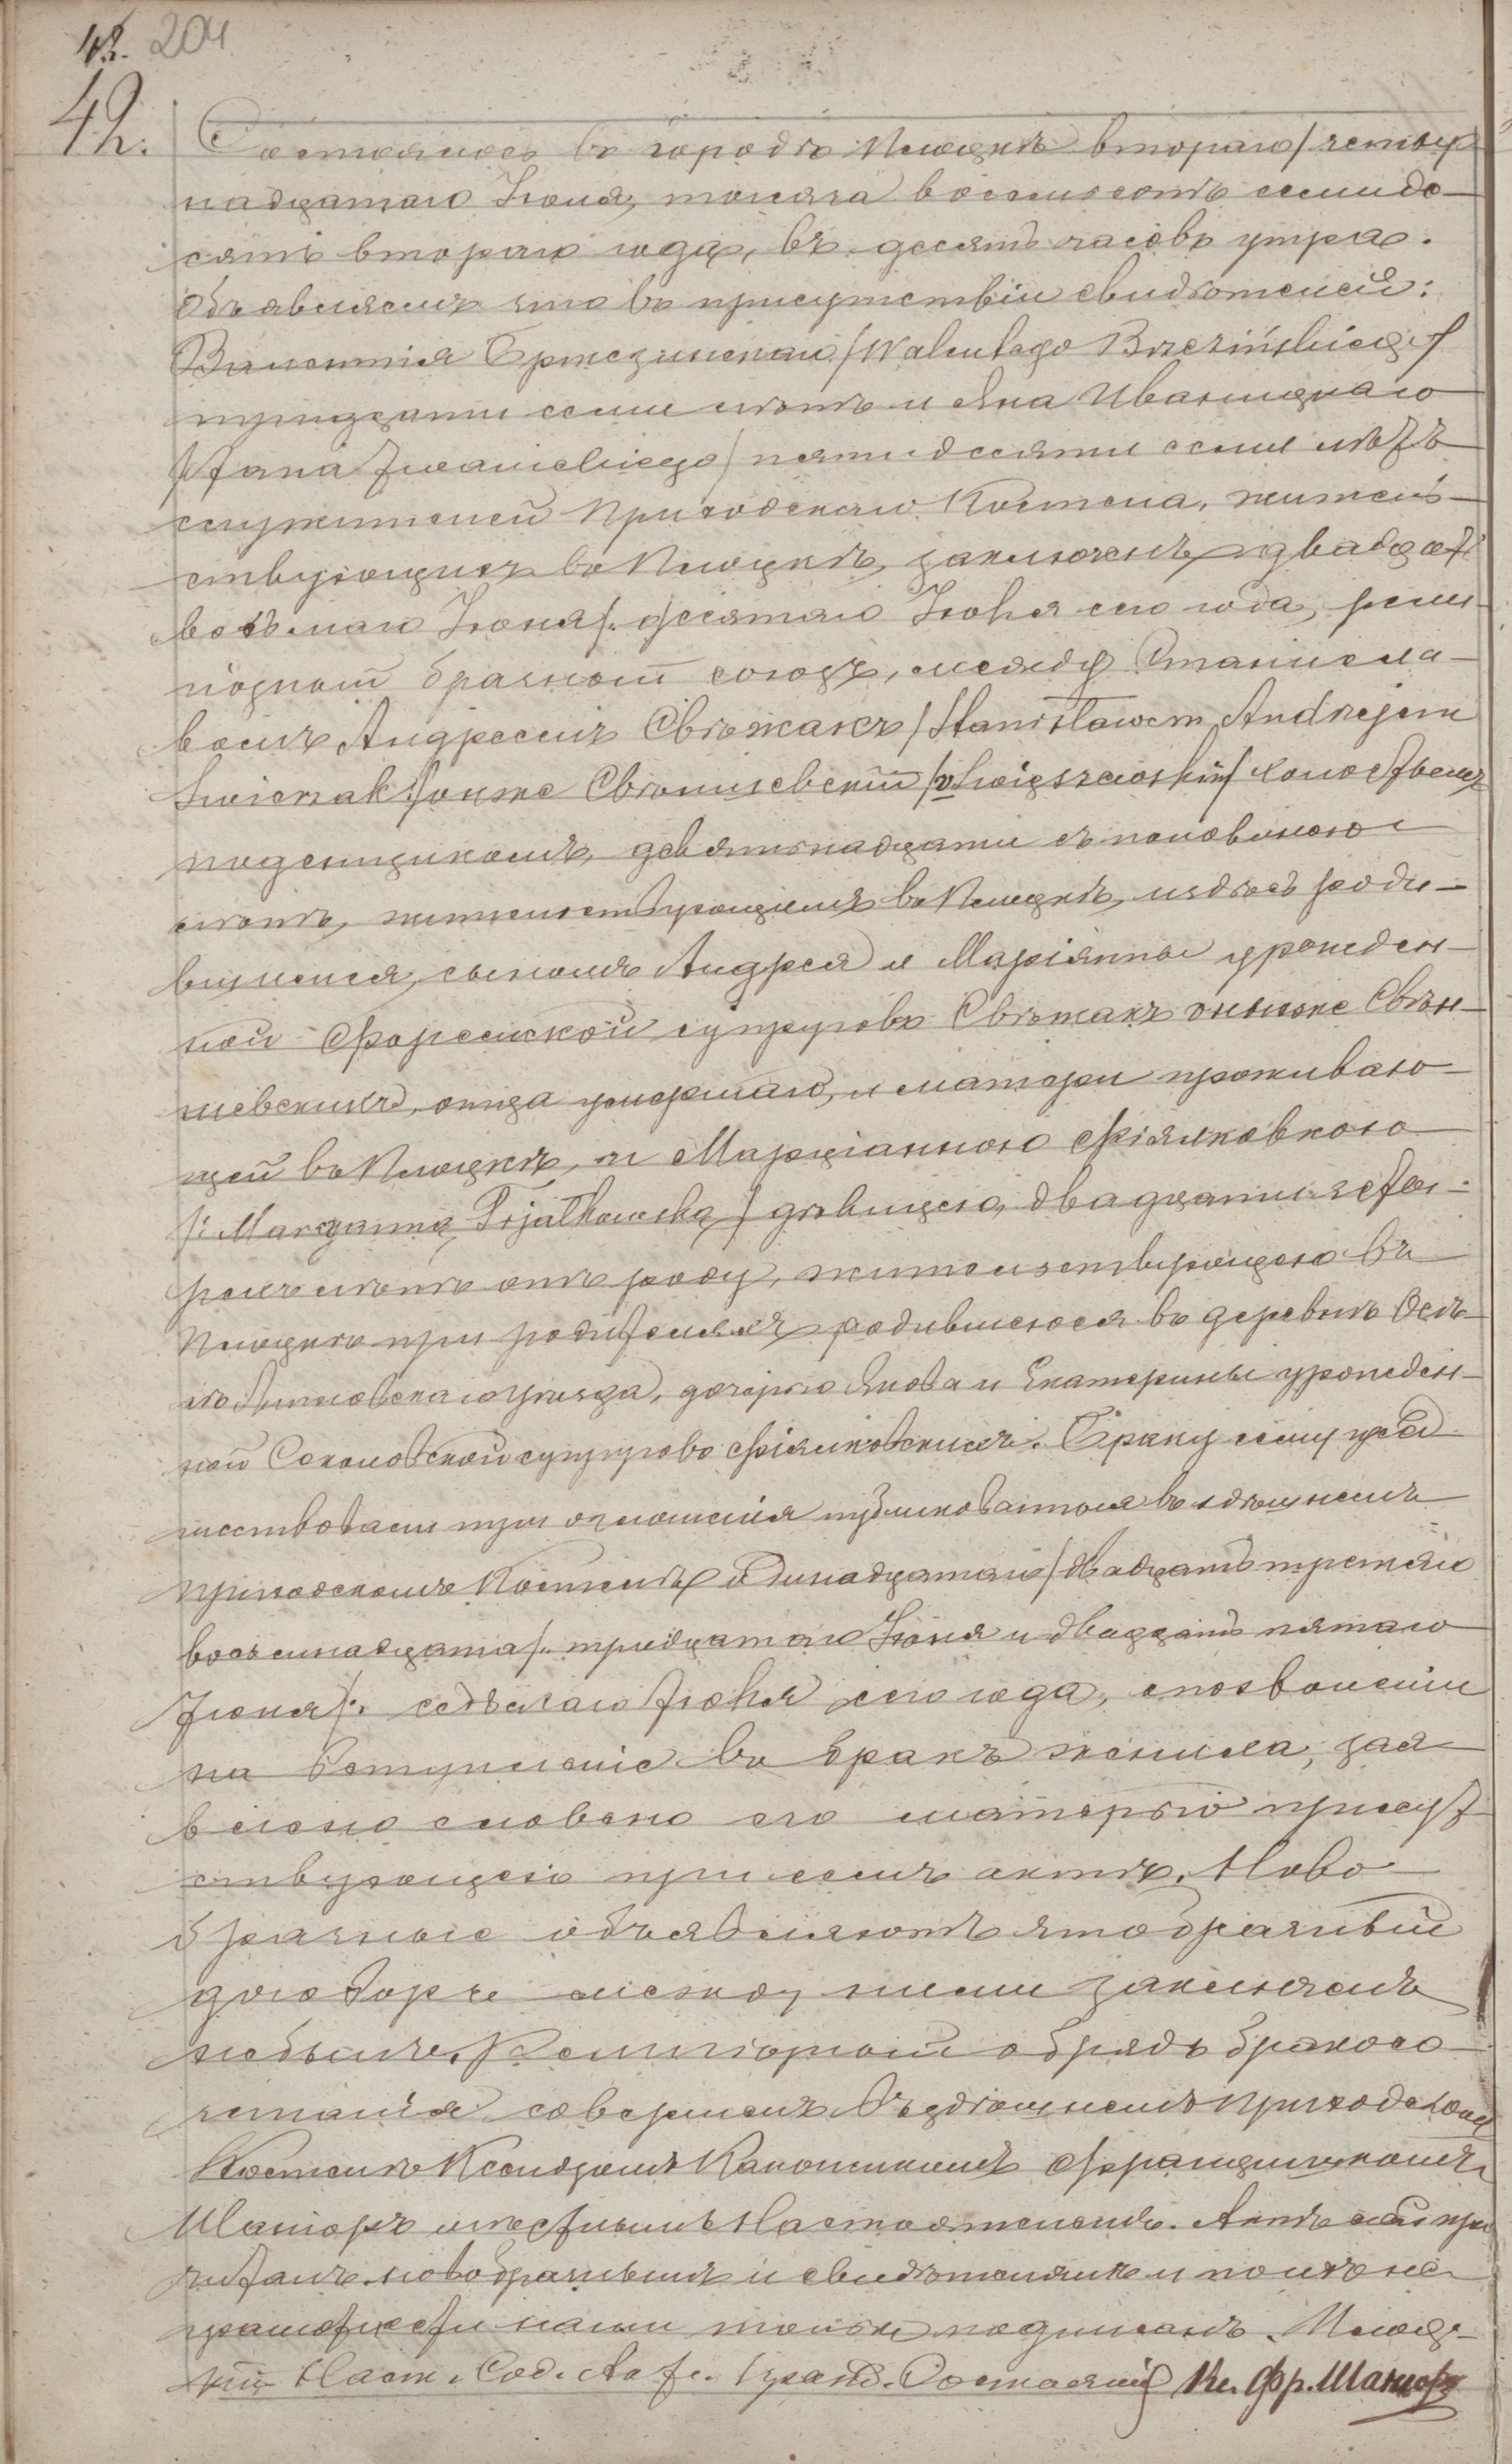 42. 204
42.
Состоялось въ городѣ Плоцкѣ втораго/четыр
надцатаго Іюля, тысяча восемьсотъ семиде-
сятъ втораго года, въ десять часовъ утра.
Объявляемъ что въ присутствіи свидѣтелей:
Валентія Бржезинскаго /Walentego Brzezińskiego/
тридцати семи лѣтъ и Яна Иваницкаго
/Jana Iwanickiego/ пятидесяти семи лѣтъ
служителей Приходскаго Костела, житель-
ствующихъ въ Плоцкѣ, заключенъ двадцать
восьмаго Іюня/: десятаго Іюля сего года, рели-
гіозный брачный союзъ, между Станисла-
вомъ Андреемъ Свѣжакъ /Stanisławem Andrzejem
Swierzak/ онже Свѣншевскій /v Swięszewskim/ холостымъ
поденщикомъ, девятнадцати съ половиною
лѣтъ, жительствующимъ въ Плоцкѣ, и здѣсь роди-
вшимся, сыномъ Андрея и Маріянны урожден-
ной Форемской супруговъ Свѣжакъ оныхже Свѣн-
шевскихъ, отца умершаго, и матери проживаю-
щей въ Плоцкѣ, и Марціанною Фіялковскою
/: Marcyanną Fijałkowską/ дѣвицею, двадцати четы-
рехъ лѣтъ отъ роду, жительствующею въ
Плоцкѣ при родителяхъ родившеюся въ деревнѣ
уѣзда, дочерью Якова и Екатерины урожден-
ной Соколовской супруговъ Фіялковскихъ. Браку сему пред
шествовали три оглашенія публикованныя въ здѣшнемъ
Приходскомъ Костелѣ одинадцатаго/двадцать третьяго
восемнадцата/: тридцатаго Іюня и двадцать пятаго
Іюня/: седьмаго Іюля сего года, а позволеніе
на вступленіе въ бракъ жениха, зая
влено словено его матерью присут
ствующею при семъ актѣ. Ново
брачные объявляютъ что брачный
договоръ между ними заключенъ
небылъ. Религіозный обрядъ бракосо
четанія совершенъ въ здѣшнемъ Приходскомъ
Костелѣ Ксендзомъ Каноникомъ Францишкомъ
Шаніоръ мѣстнымъ Настоятелемъ. Актъ сей про
читанъ новобрачнымъ и свидѣтелямъ и по ихъ не
грамотности нами только подписанъ. Плоц-
кій Наст. Сод. Акт. Гражд. Состоянія Кс. Фр. Шаніоръ